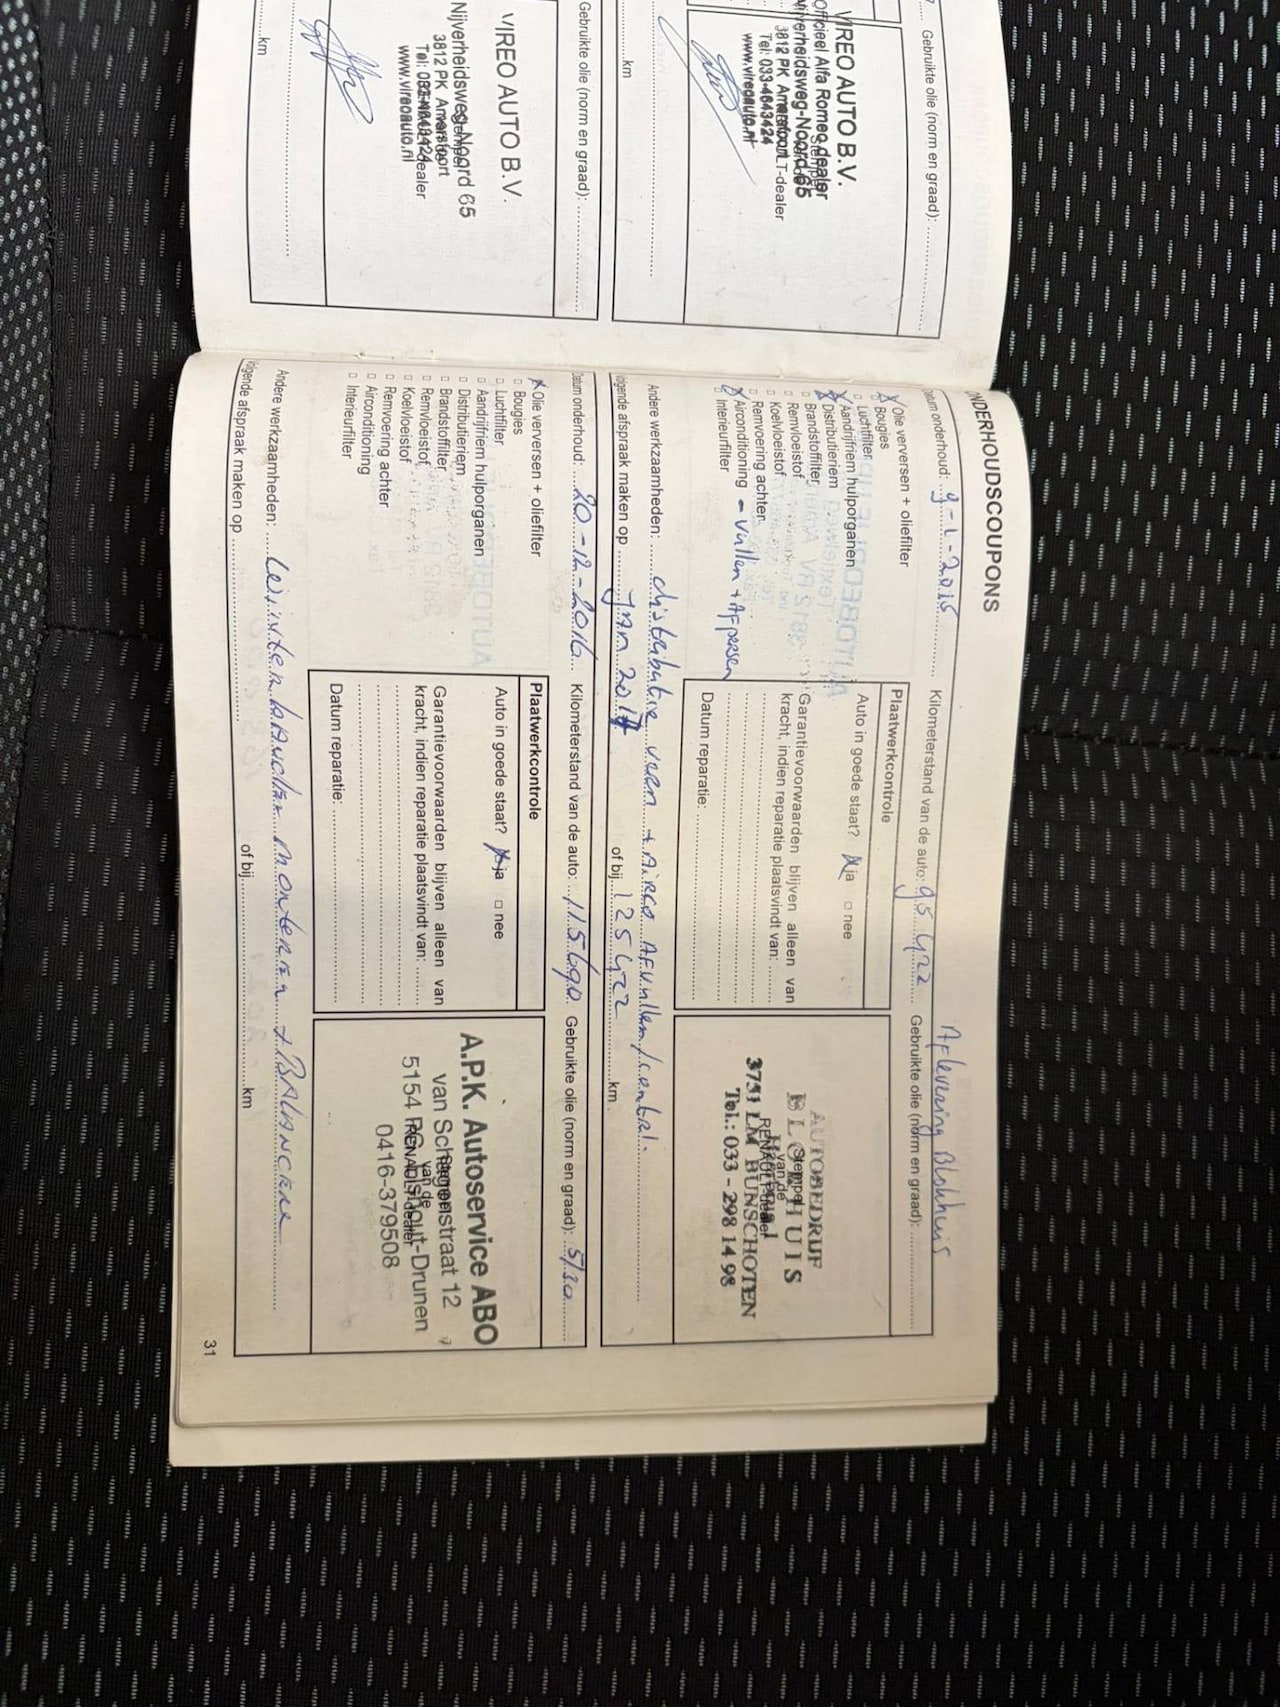 Gebruikte olie (norm en graad):
VIREO AUTO B.V.
Officieel Alfa Romeo dealer
Nijverheidsweg-Noord 65
3812 PK Amersfoort
Tel: 033-4643424
www.vireoauto.nl
km
Gebruikte olie (norm en graad):
VIREO AUTO B.V.
Nijverheidsweg-Noord 65
3812 PK Amersfoort
www.vireoauto.nl
km
ONDERHOUDSCOUPONS
Aflevering Blokhuis
Datum onderhoud: 9-1-2015 Kilometerstand van de auto: 95422 Gebruikte olie (norm en graad):
Olie verversen + oliefilter
Bougies
Luchtfilter
Aandrijfriem hulporganen
Distributieriem
Brandstoffilter
Remvloeistof
Koelvloeistof
Remvoering achter
Airconditioning - vullen + Afpersen
Interieurfilter
Plaatwerkcontrole
Auto in goede staat? ja nee
Garantievoorwaarden blijven alleen van
kracht, indien reparatie plaatsvindt van:
Datum reparatie:
AUTOBEDRIJF
BLOKHUIS
Stempel
van de
RENAULT-dealer
3751 LM BUNSCHOTEN
Tel.: 033 - 298 14 98
Andere werkzaamheden: distributie vern + Airco Afvullen/control.
Volgende afspraak maken op Jan 2017 of bij 125422 km
Datum onderhoud: 20-12-2016 Kilometerstand van de auto: 115690 Gebruikte olie (norm en graad): 5/30
Olie verversen + oliefilter
Bougies
Luchtfilter
Aandrijfriem hulporganen
Distributieriem
Brandstoffilter
Remvloeistof
Koelvloeistof
Remvoering achter
Airconditioning
Interieurfilter
Plaatwerkcontrole
Auto in goede staat? ja nee
Garantievoorwaarden blijven alleen van
kracht, indien reparatie plaatsvindt van:
Datum reparatie:
A.P.K. Autoservice ABO
van Schagenstraat 12
Stempel
van de
RENAULT-dealer
5154 Elshout-Drunen
0416-379508
Andere werkzaamheden: Winterbanden monteren + BALANCEREN
Volgende afspraak maken op of bij km
31